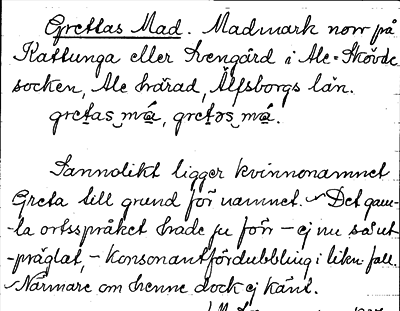 Grettas Mad. Madmark norr på
Kattunga eller Svengård i Ale-Skövde
socken, Ale härad, Älfsborgs län.
gretas má, gretəs má.
Sannolikt ligger kvinnonamnet
Greta till grund för namnet. Det gam-
-la ortsspråket hade ju förr - ej nu så ut-
-präglat, - konsonantfördubbling i likn. fall.
Närmare om henne dock ej känt.